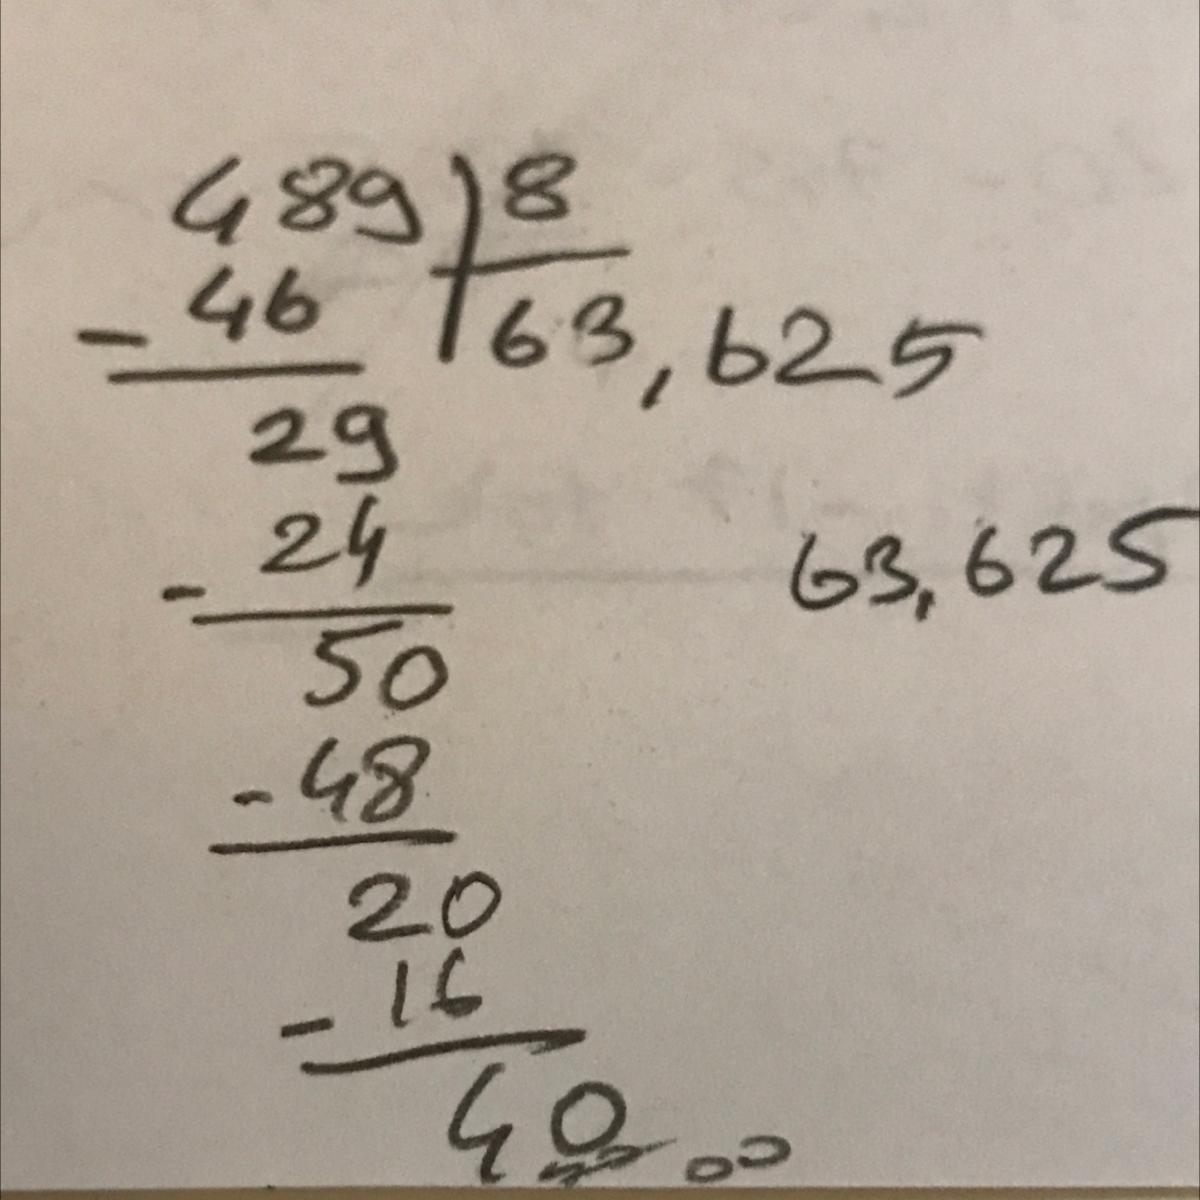 489 8
- 46 63,625
29
- 24 63,625
50
- 48
20
- 16
40